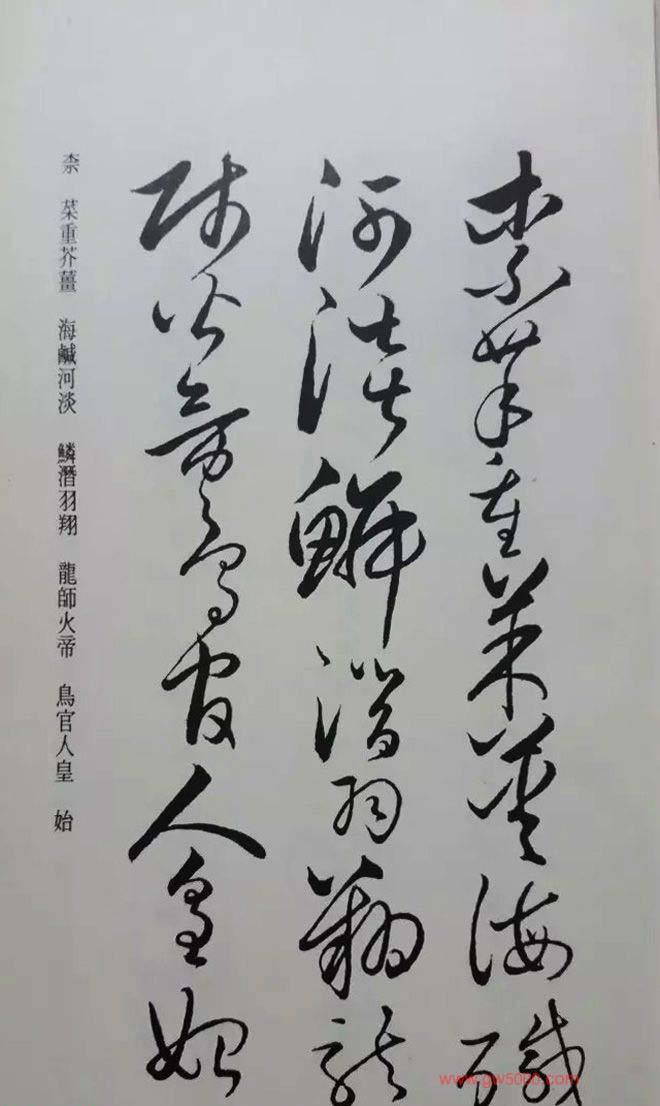 柰菜重芥薑海鹹
河淡鱗潛羽翔龍
師火帝鳥官人皇始
柰 菜重芥薑 海鹹河淡 鱗潛羽翔 龍師火帝 鳥官人皇 始
www.gw5000.com